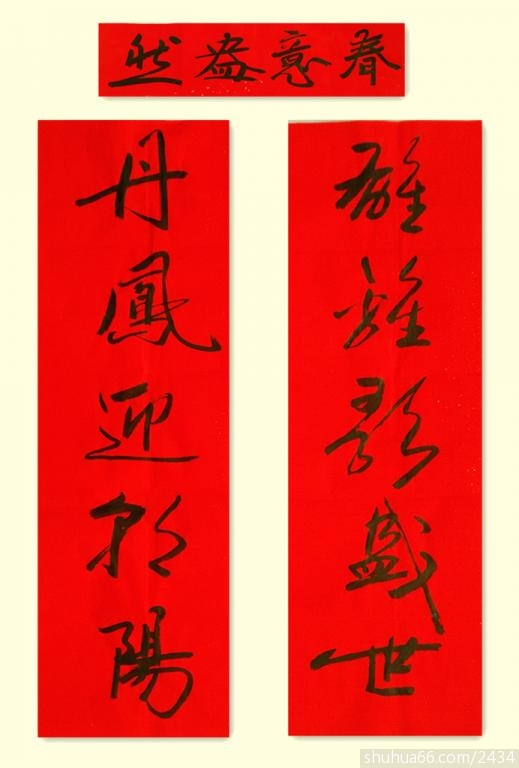 春意盎然
雄雞歌盛世
丹鳳迎朝陽
shuhua66.com/2434